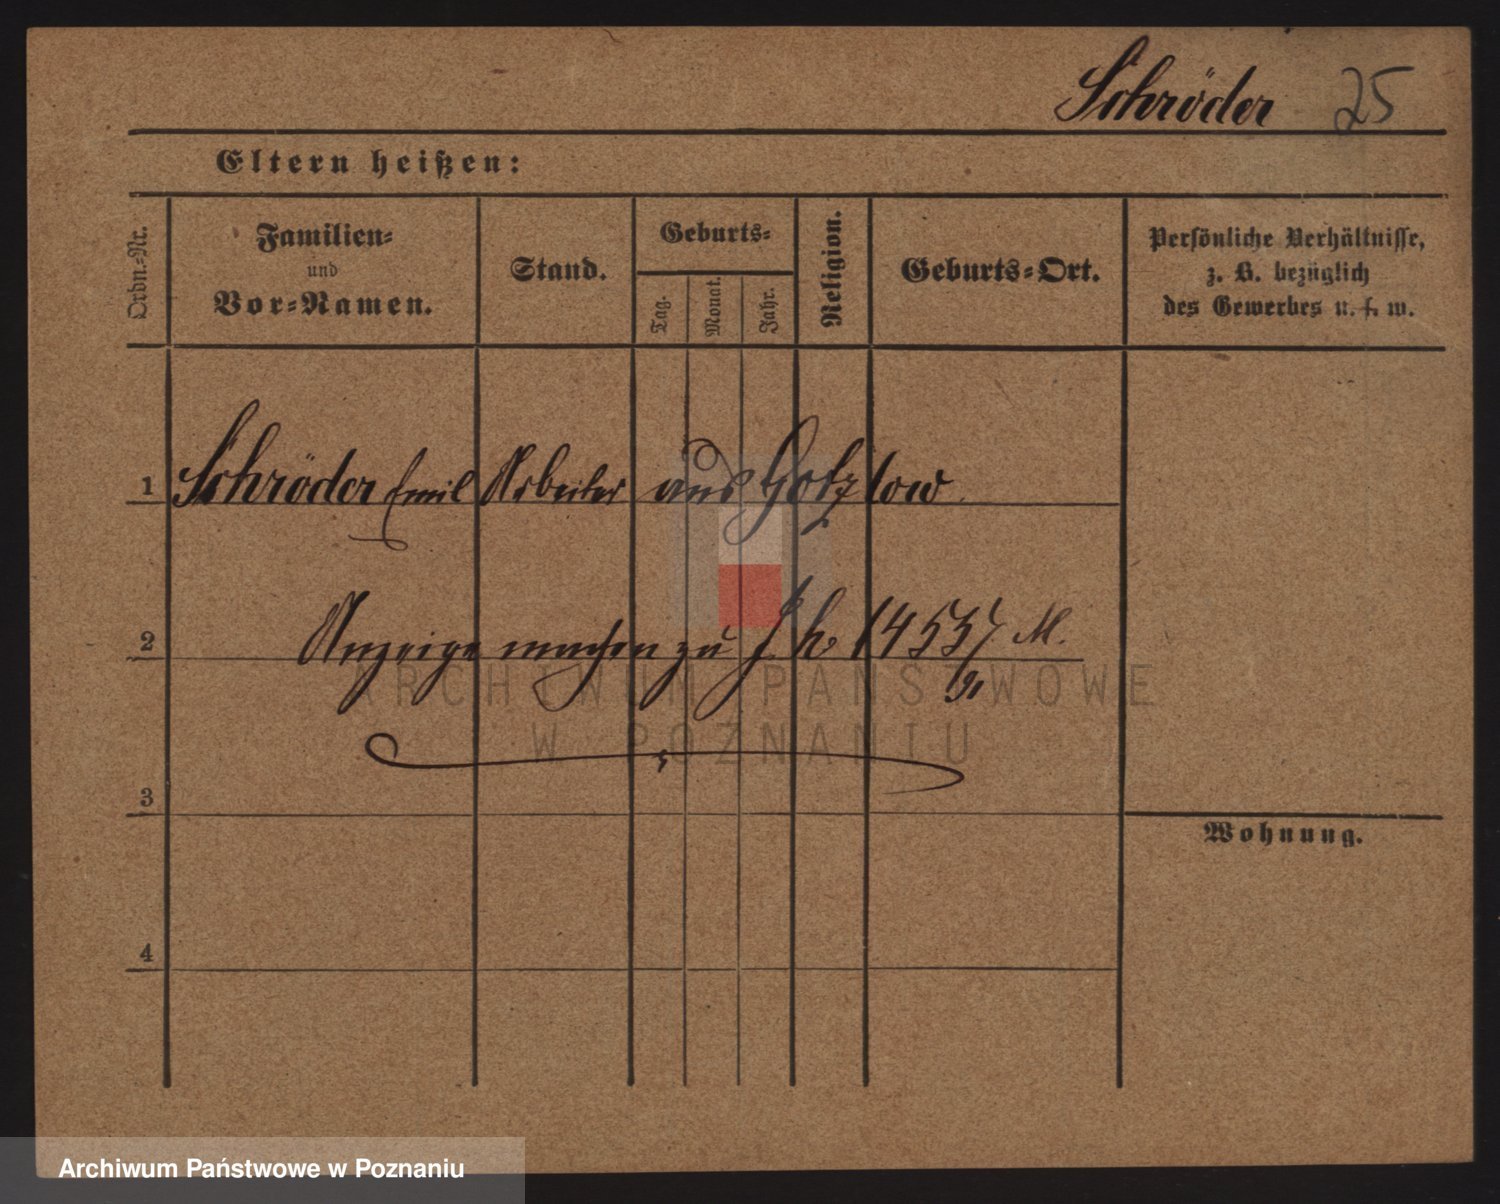 Schröder 25
Eltern heißen:
Ordn.-Nr.
Familien-
und
Vor-Namen.
Stand.
Geburts-
Tag.
Monat.
Jahr.
Religion.
Geburts-Ort.
Persönliche Verhältnisse,
z. B. bezüglich
des Gewerbes u. s. w.
1 Schröder Emil Arbeiter aus
2 Anzeige machen zu J. h. 14537 M.
91
ARCHIWUM PAŃSTWOWE
W POZNANIU
3
Wohnung.
4
Archiwum Państwowe w Poznaniu